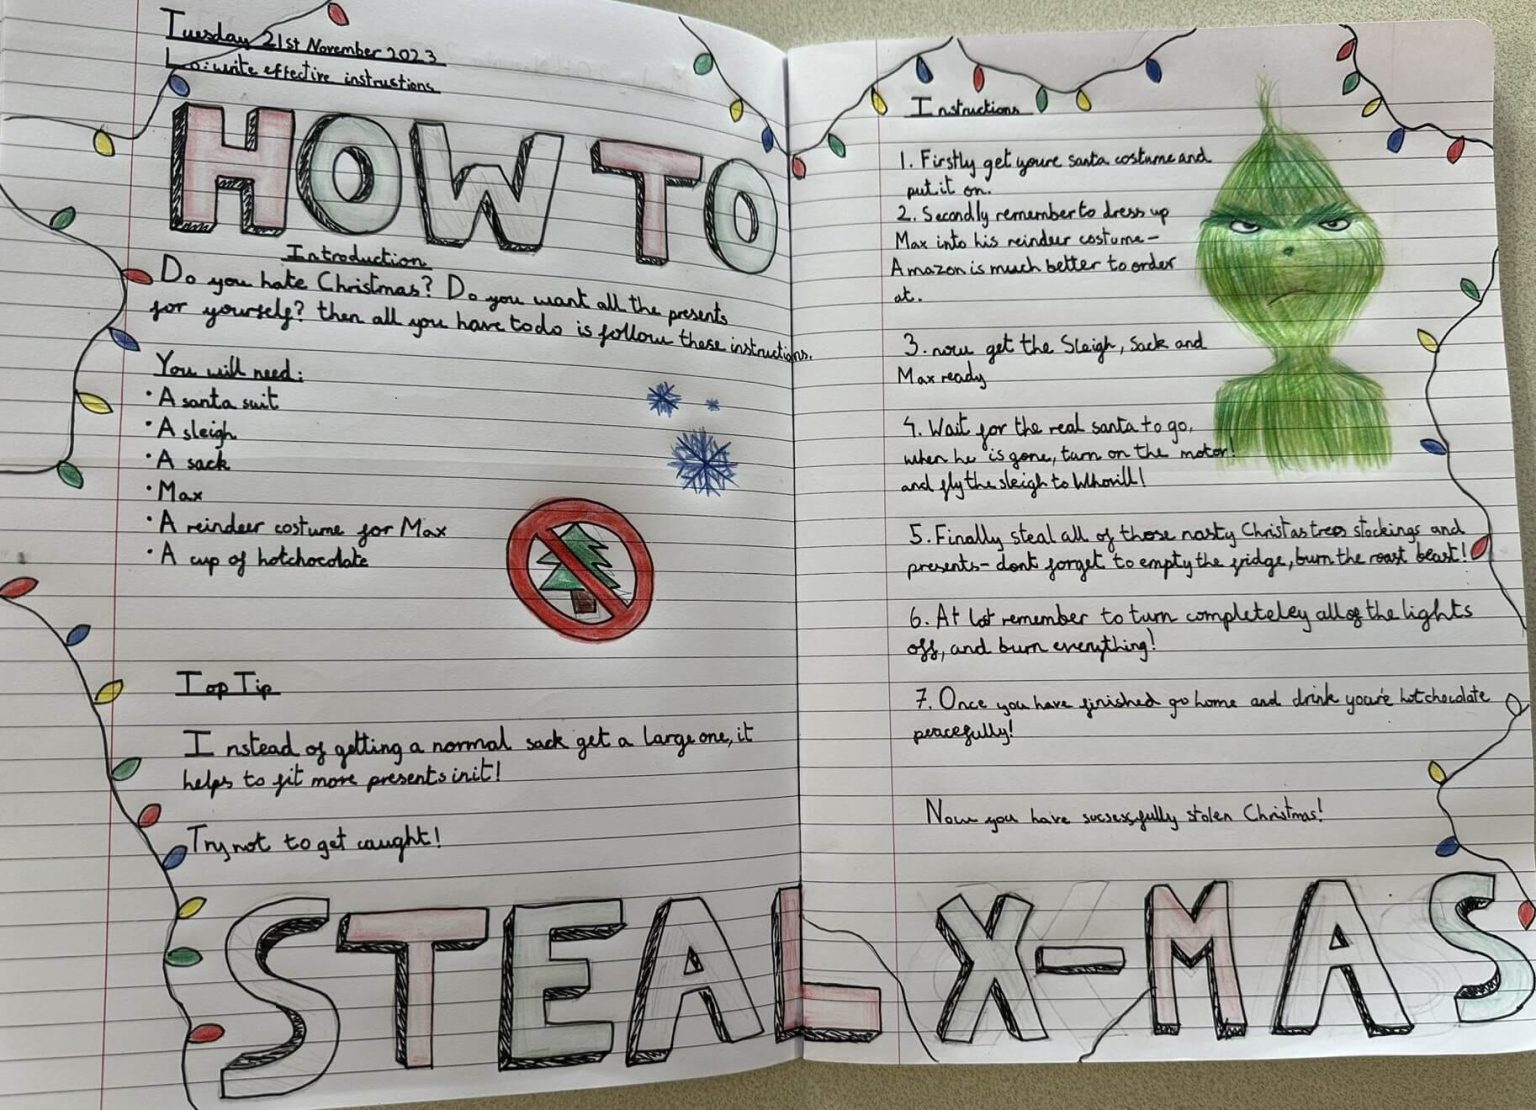 Tuesday 21st November 2023
Lo: write effective instrustions
HOW TO
Introduction
Do you hate Christmas? Do you want all the presents
for yourself? then all you have todo is follow these instructions.
You will need:
· A santa suit
· A sleigh
· A sack
· Max
· A reindeer costume for Max
· A cup of hotchocolate
Top Tip
Instead of getting a normal sack get a large one, it
helps to fit more presents init!
Try not to get caught!
STEAL X-MAS
Instructions
1. Firstly get youre santa costume and
put it on.
2. Secondly remember to dress up
Max into his reindeer costume-
Amazon is much better to order
at.
3. now get the Sleigh, Sack and
Max ready
4. Wait for the real santa to go,
when he is gone, turn on the motor!
and fly the sleigh to Whovill!
5. Finally steal all of those nasty Christas trees stockings and
presents- dont forget to empty the fridge, burn the roast beast!
6. At last remember to turn completeley all of the lights
off, and burn everything!
7. Once you have finished go home and drink youre hotchocolate
peacefully!
Now you have sucsessfully stolen Christmas!